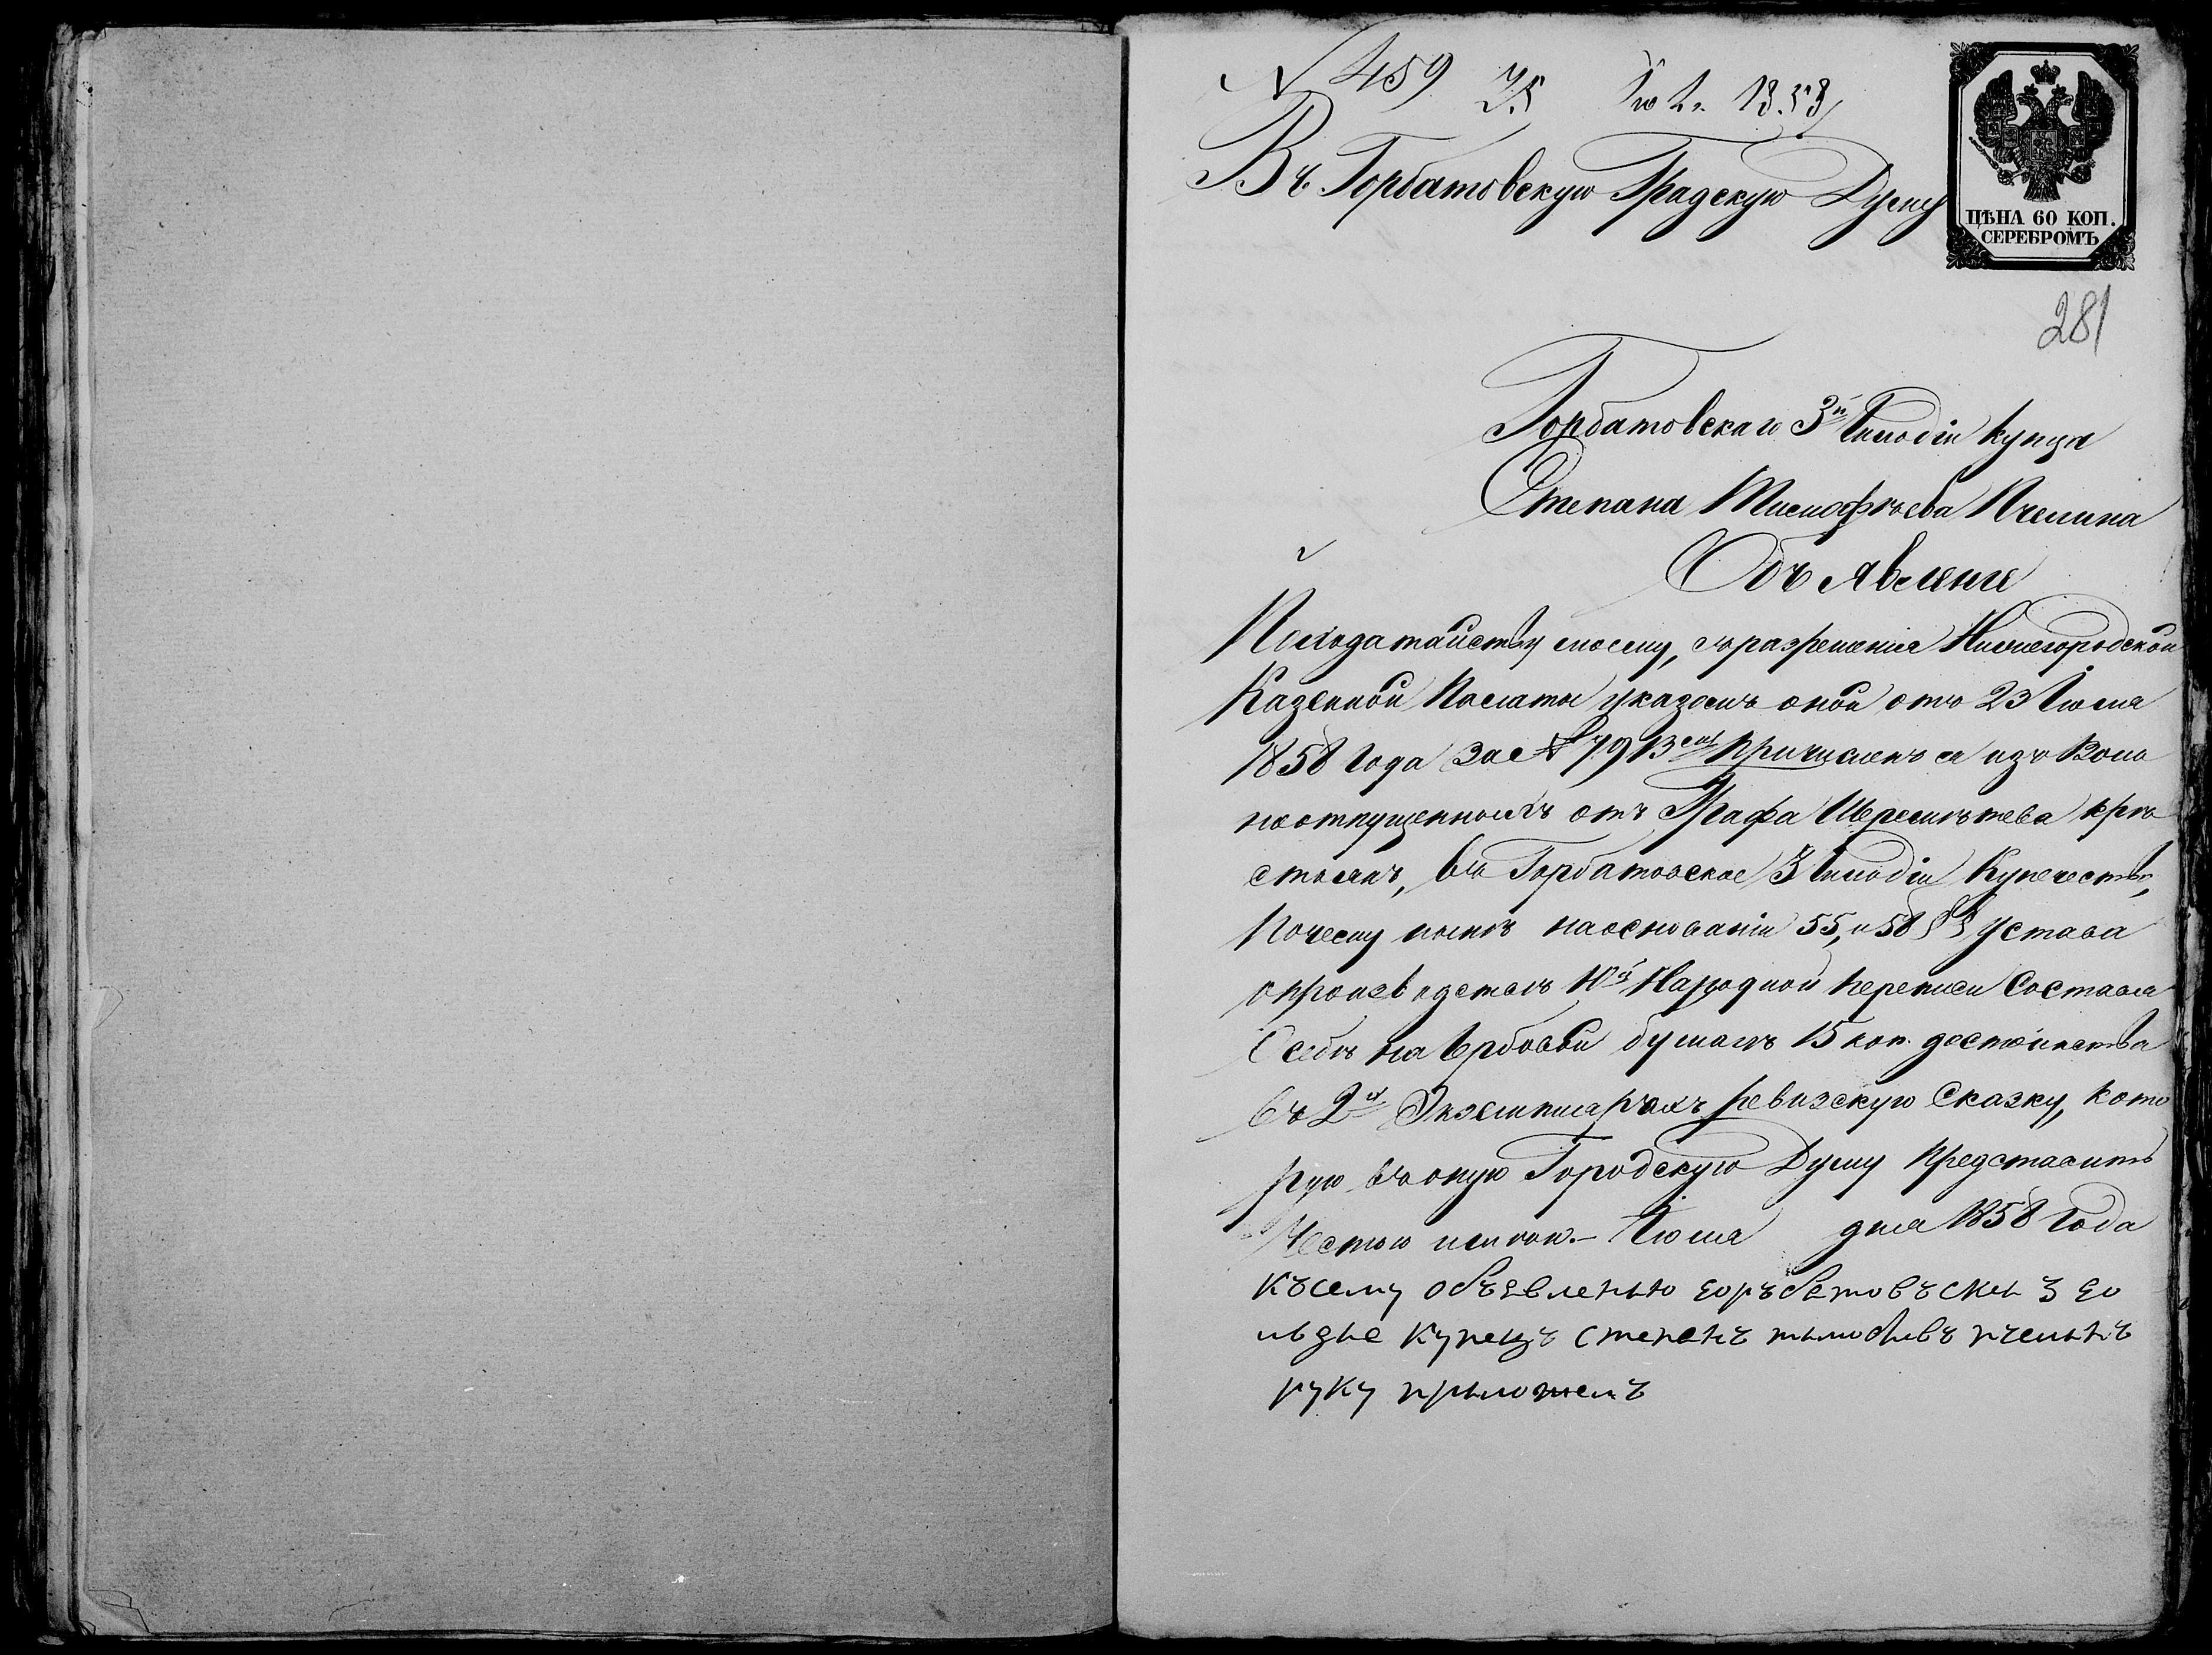 N 459 25 Iюл. 1858
Въ Горбатовскую Градскую Думу
ЦѢНА 60 КОП.
СЕРЕБРОМЪ
281
Горбатовскаго 3й Гильдіи купца
Степана Тимофѣева Пчелина
Объявленіе
Походатайству моему, съразрешенія Нижегородской
Казенной Палаты указомъ оной отъ 23 Іюля
1858 Года за № 7913 мъ причисленъ я изъ Воль
ноотпущенныхъ отъ Графа Шереметева крѣ
стьянъ, въ Горбатовское 3 Гильдіи Купечество,
Почему нынѣ наоснованіи 55, и 58 §§ Устава
опроизводствѣ 10й Народной переписи Составя
Осебѣ на Гербовой бумагѣ 15 коп. достоинства
въ 2х Экземплярахъ ревизскую Сказку, кото
рую въоную Городскую Думу представить
Честью имѣю. – Іюля дня 1858 Года
късему объевленью горъбатовъскы 3 го
льдые купецъ степанъ тымофевъ пчелынъ
руку прыложелъ